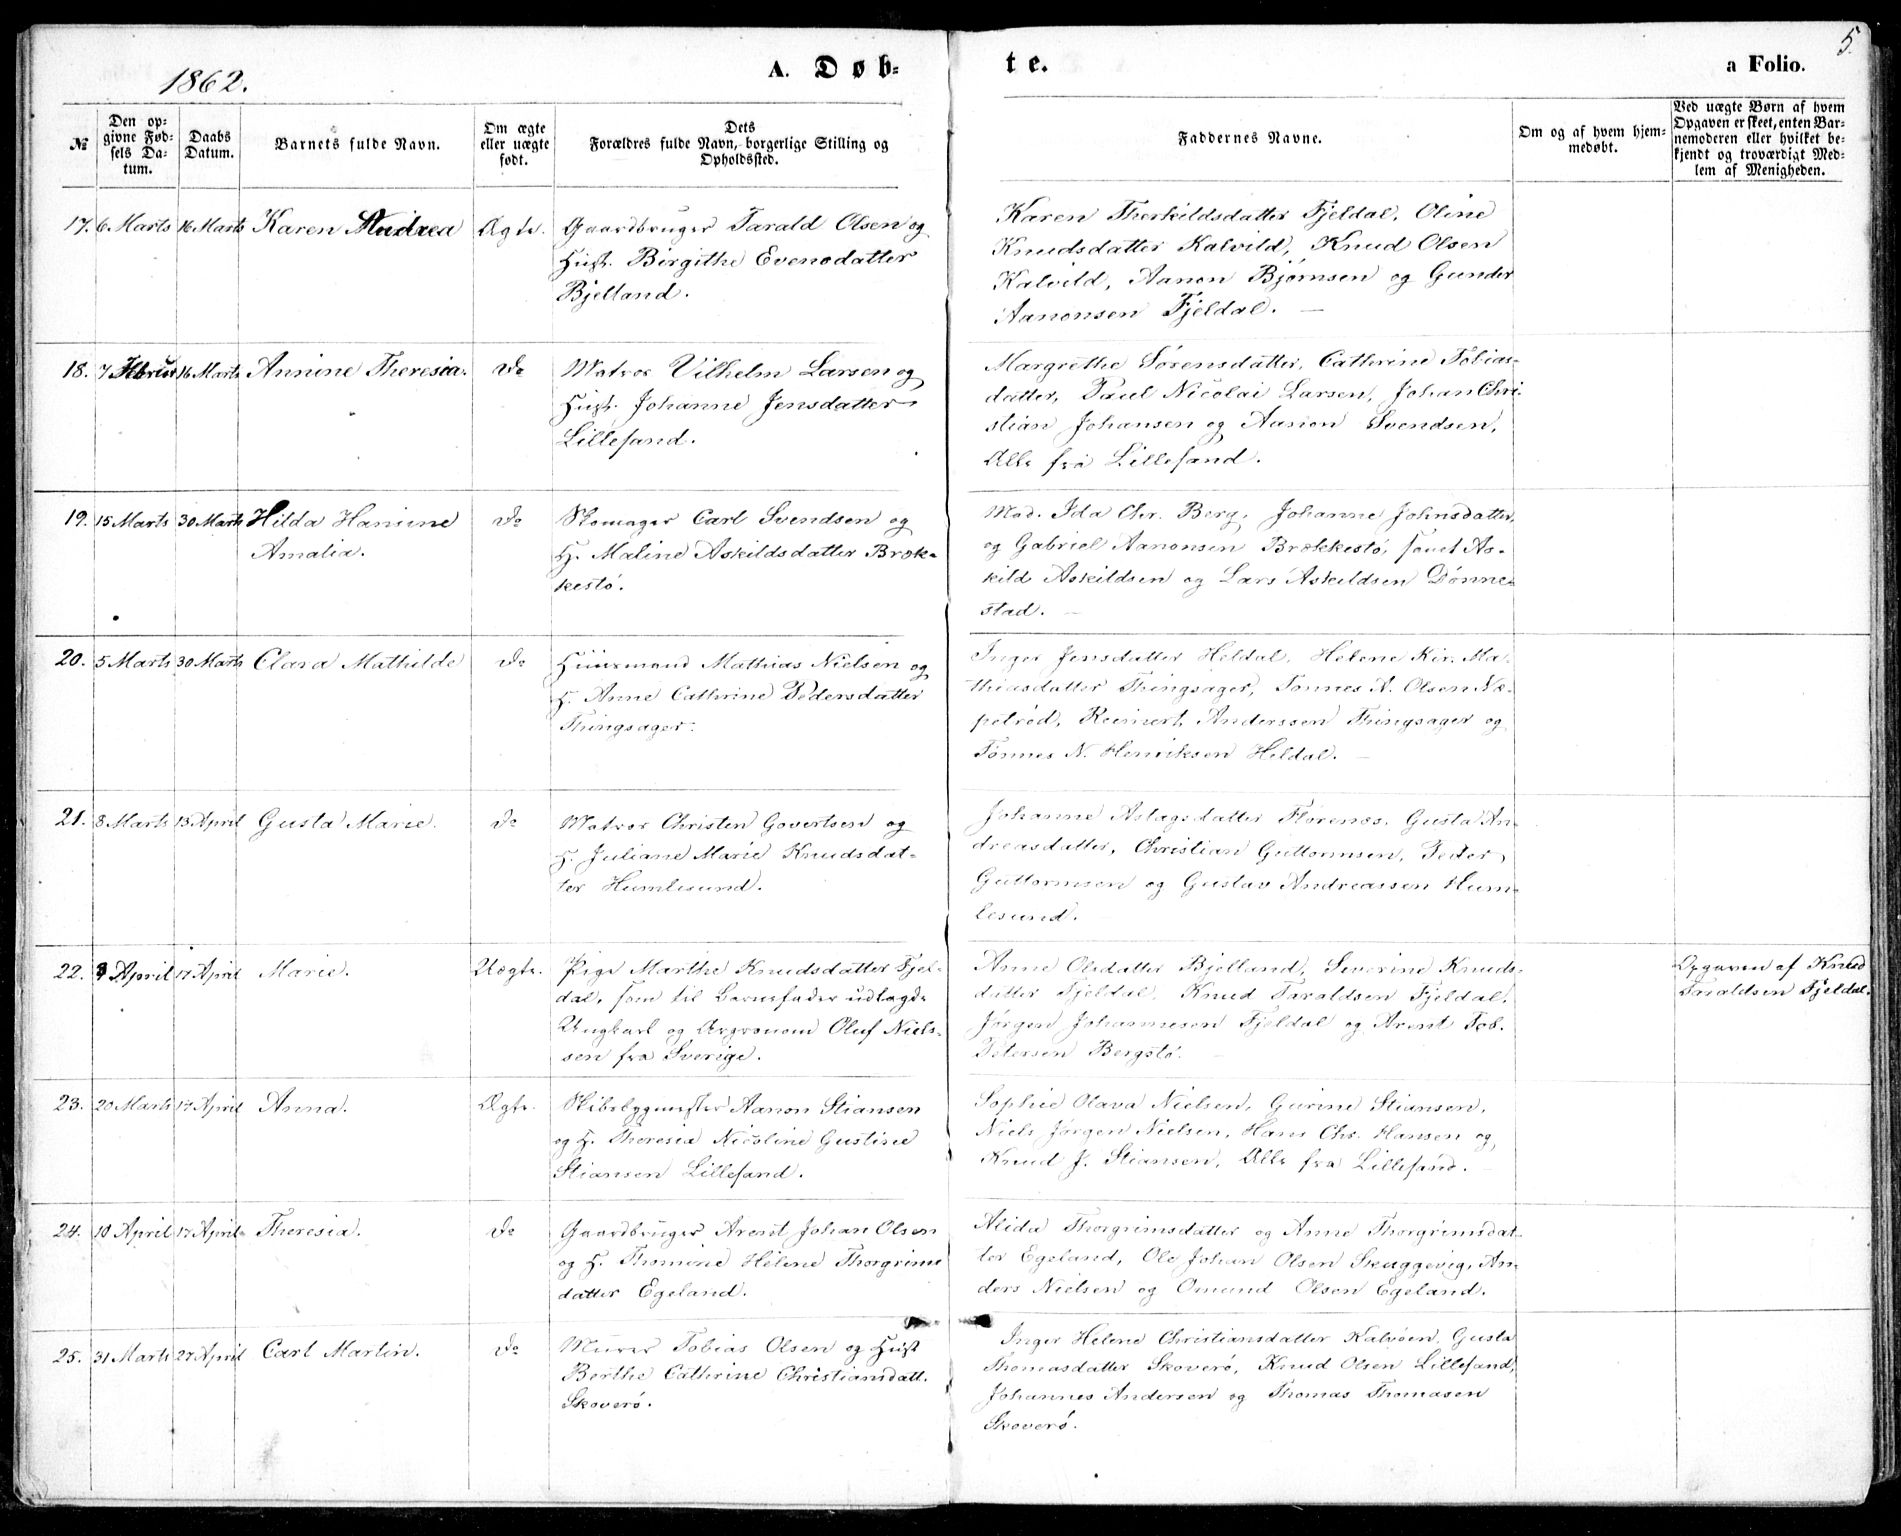 5.
1862.
A. Døb-
te.
a Folio.
№
Den op-
givne Fød-
sels Da-
tum.
Daabs
Datum.
Barnets fulde Navn.
Om ægte
eller uægte
født.
Dets
Forældres fulde Navn, borgerlige Stilling og
Opholdssted.
Faddernes Navne.
Om og af hvem hjem-
medøbt.
Ved uægte Børn af hvem
Opgaven er skeet, enten Bar-
nemoderen eller hvilket be-
kjendt og troværdigt Med-
lem af Menigheden.
17. 6 Marts 16 Marts Karen Andrea Ægte.
Gaardbruger Tarald Olsen og
Hust. Birgithe Evensdatter
Bjelland.
Karen Therkildsdatter Fjeldal, Oline
Knudsdatter Kalvild, Knud Olsen
Kalvild, Aanon Bjørnsen og Gunder
Aanonsen Fjeldal. —
18. 7 Februr 16 Marts Annine Theresia. Do
Matros Vilhelm Larsen og
Hust. Johanne Jensdatter
Lillesand.
Margrethe Sørensdatter, Cathrine Tobias-
datter, Paul Nicolai Larsen, Johan Chri-
stian Johansen og Aanon Svendsen,
Alle fra Lillesand.
19. 15 Marts 30 Marts Hilda Hansine
Amalia.
Do
Skomager Carl Svendsen og
H. Maline Askildsdatter Bræk-
kestø.
Mad. Ida Chr. Berg, Johanne Johnsdatter,
og Gabriel Aanonsen Brækkestø, samt As-
kild Askildsen og Lars Askildsen Dønne-
stad. —
20. 5 Marts 30 Marts Clara Mathilde Do
Huusmand Mathias Nielsen og
H. Anne Cathrine Pedersdatter
Thingsager.
Inger Jensdatter Heldal, Helene Kir. Ma-
thiasdatter Thingsager, Tønnes A. Olsen Næ-
petrød, Reinert Anderssen Thingsager og
Tønnes N. Henriksen Heldal. —
21. 8 Marts 13 April Gusta Marie. Do
Matros Christen Govertsen og
H. Juliane Marie Knudsdat-
ter Humlesund.
Johanne Aslagsdatter Florenæs, Gusta An-
dreasdatter, Christian Guttormsen, Peder
Guttormsen og Gustav Andreassen Hum-
lesund. —
22. April 17 April Marie. Uægte.
Pige Marthe Knudsdatter Fjel-
dal, som til Barnefader udlagde
Ungkarl og Agronom Oluf Niels-
sen fra Sverige.
Anne Olsdatter Bjelland, Severine Knuds-
datter Fjeldal, Knud Taraldsen Fjeldal,
Jørgen Johannesen Fjeldal og Arent Tob.
Petersen Bergstø. —
Opgaven af Knud
Taraldsen Fjeldal.
23. 20 Marts 17 April Anna. Ægte.
Skibsbygmester Aanon Stiansen
og H. Theresia Nicoline Gustine
Stiansen Lillesand.
Sophie Olava Nielsen, Gurine Stiansen,
Niels Jørgen Nielsen, Hans Chr. Hansen og
Knud J. Stiansen, Alle fra Lillesand. —
24. 10 April 17 April Theresia. Do
Gaardbruger Arent Johan Olsen
og H. Thomine Helene Thorgrims
datter Egeland.
Alida Thorgrimsdatter og Anne Thorgrimsdat-
ter Egeland, Ole Johan Olsen Skuggevig, An-
ders Nielsen og Omund Olsen Egeland.
25. 31 Marts 27 April Carl Martin. Do
Murer Tobias Olsen og Hust
Berthe Cathrine Christiansdatt.
Skoverø.
Inger Helene Christiansdatter Kalvøen, Gusta
Thomasdatter Skoverø, Knud Olsen Lillesand,
Johannes Andersen og Thomas Thomasen
Skoverø.